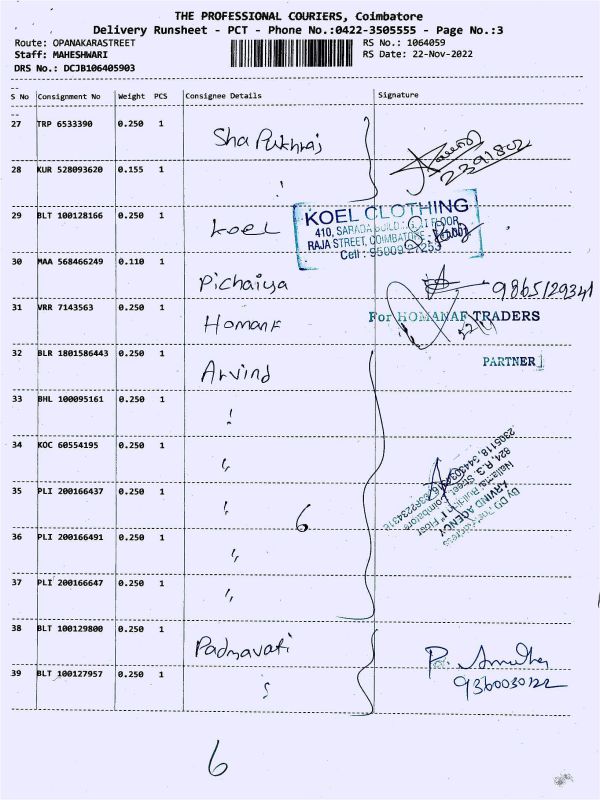 THE PROFESSIONAL COURIERS, Coimbatore
Delivery Runsheet - PCT - Phone No.:0422-3505555 - Page No.:3
Route: OPANAKARASTREET RS No.: 1064059
Staff: MAHESHWARI RS Date: 22-Nov-2022
DRS No.: DCJB106405903
S No Consignment No Weight PCS Consignee Details Signature
27 TRP 6533390 0.250 1 Sha Pukhraj
2291802
28 KUR 528093620 0.155 1 "
29 BLT 100128166 0.250 1 Koel
KOEL CLOTHING
410, SARADA BUILD. II FLOOR
RAJA STREET, COIMBATORE
Cell : 
30 MAA 568466249 0.110 1 Pichaiya 9865129341
31 VRR 7143563 0.250 1 Homanf For HOMANAF TRADERS
22/11
PARTNER
32 BLR 1801586443 0.250 1 Arvind
33 BHL 100095161 0.250 1 "
34 KOC 60554195 0.250 1 "
35 PLI 200166437 0.250 1 " 6
ARVIND AGENCY
36 PLI 200166491 0.250 1 "
37 PLI 200166647 0.250 1 "
38 BLT 100129800 0.250 1 Padmavati
39 BLT 100127957 0.250 1 " 9360030122
6